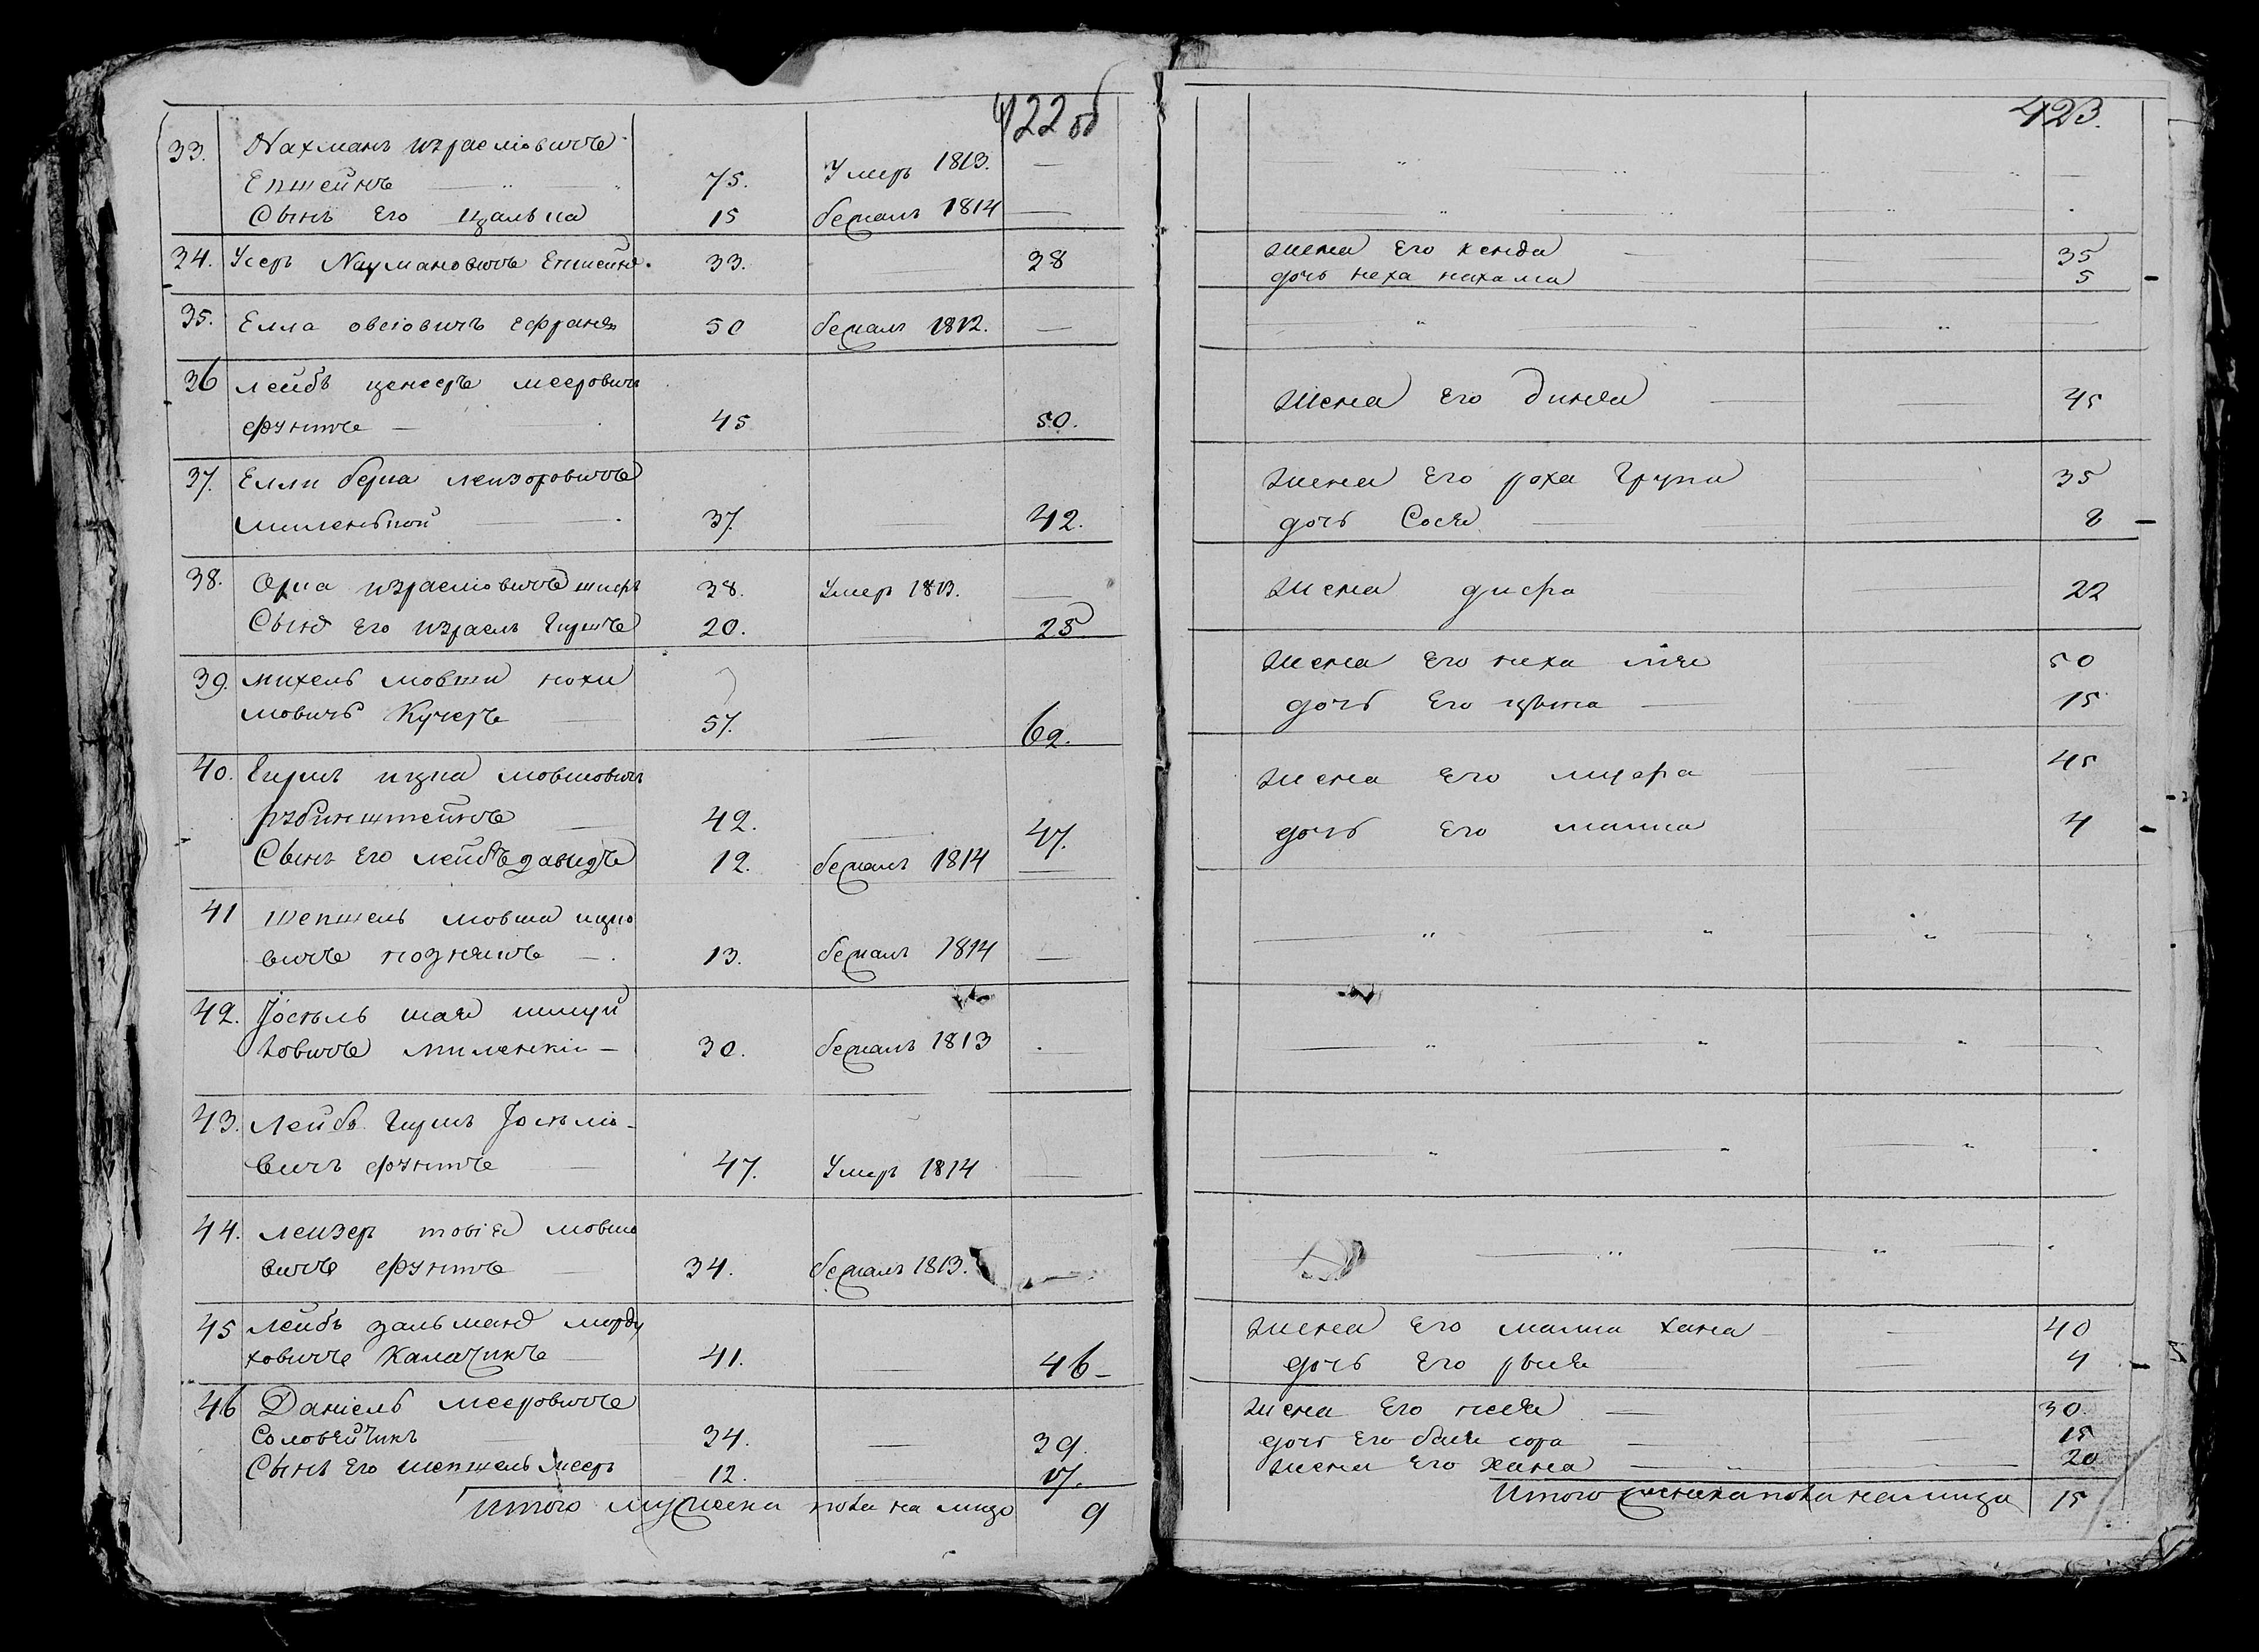 422 об
33. Нахманъ израелювичъ
Епштейнъ 75. Умеръ 1813.
Сынъ его ицалька 15 бежалъ 1814
34. Усеръ Наумановичъ Епштейнъ 33. 38
35. Елла овсiовичъ 50 бежалъ 1812.
36 лейбъ мееровичъ
фунтъ 45 50.
37. Елли берка лейзоровичъ
миленькой 37. 42.
38. Орка израелювичъ 38. Умеръ 1813.
Сынъ его израель гиршъ 20. 25
39. михель мовша нохи
мовичъ Кучеръ 57. 62.
40. Гиршъ ицка мовшовичъ
рубинштейнъ 42. 47.
Сынъ его лейбъ давидъ 12. бежалъ 1814
41 шепшель мовша ицко
вичъ познякъ 13. бежалъ 1814
42. Iосель шая
ховичъ миленкiи 30. бежалъ 1813
43. Лейбъ гиршъ Iосело-
вичъ фунтъ 47. Умеръ 1814
44. лейзеръ товiя мовшо
вичъ фунтъ 34. бежалъ 1813.
45 лейбъ зальманъ морду
ховичъ Калачикъ 41. 46
46 Данiель мееровичъ
Соловейчикъ 34. 39.
Сынъ его шепшель мееръ 12. 17.
Итого мужеска пола на лицо 9
423.
жена его хенда 35
дочь неха нихама 5
жена его динея 45
жена его роха груна 35
дочь Сося 8
жена дифра 22
жена его неха лiя 50
дочь его цывка 15
жена его 45
дочь его малка 4
жена его малка хана 40
дочь его рыся 4
жена его песя 30.
дочь его бася сора 15
жена его хана 20
Итого женска пола на лицо 15